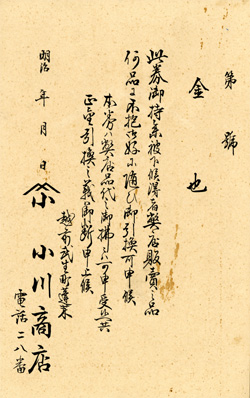 第　號
金　也
此券御持参被下候得者弊店販賣之品
何品に不抱御好に随ひ御引換可申候
本券ハ弊店品代之御拂ニハ可申受候共
正金引換之義ハ御断申上候
越前武生町蓬莱
明治　年　月　日
小川商店
電話二八番